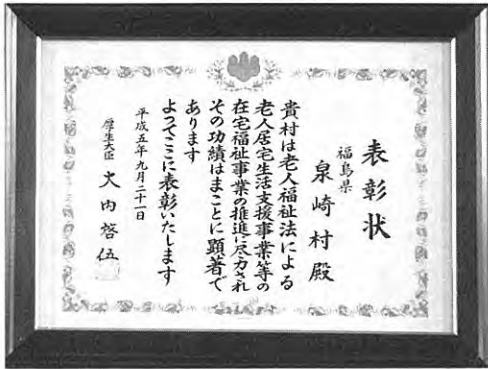 表彰状
福島県
泉崎村殿
貴村は老人福祉法による
老人居宅生活支援事業等の
在宅福祉事業の推進に尽力され
その功績はまことに顕著で
あります
よってここに表彰いたします
平成五年九月二十一日
厚生大臣 大内啓伍